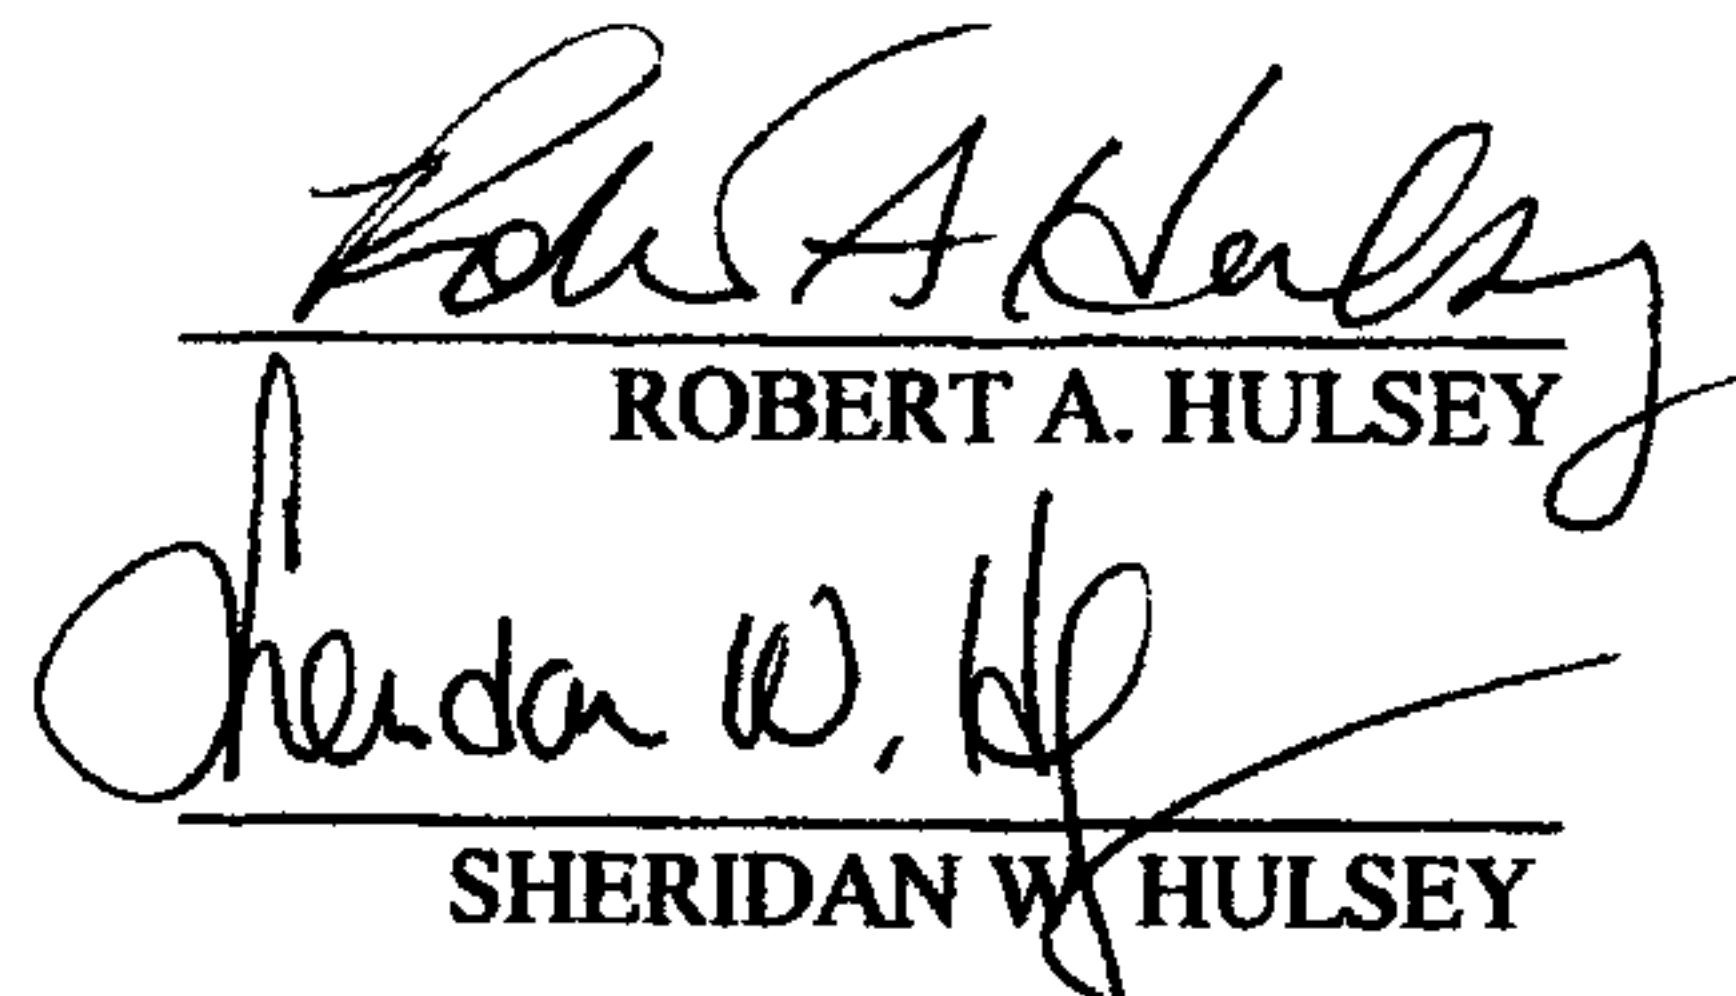 Robert A Hulsey
ROBERT A. HULSEY
Sheridan W. H
SHERIDAN W. HULSEY